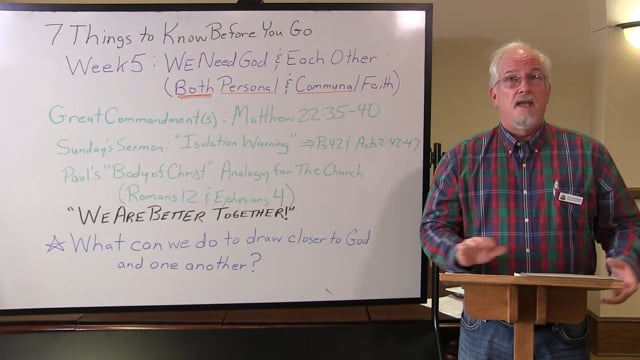 7 Things to Know Before You Go
Week 5: We Need God & Each Other
(Both Personal & Communal Faith)
Great Commandment(s): Matthew 22:35-40
Sunday's Sermon: "Isolation Warning" ⇒ Ps 42 & Acts 2:42-47
Paul's "Body of Christ" Analogy for The Church
(Romans 12 & Ephesians 4)
"We Are Better Together!"
☆ What can we do to draw closer to God
and one another?